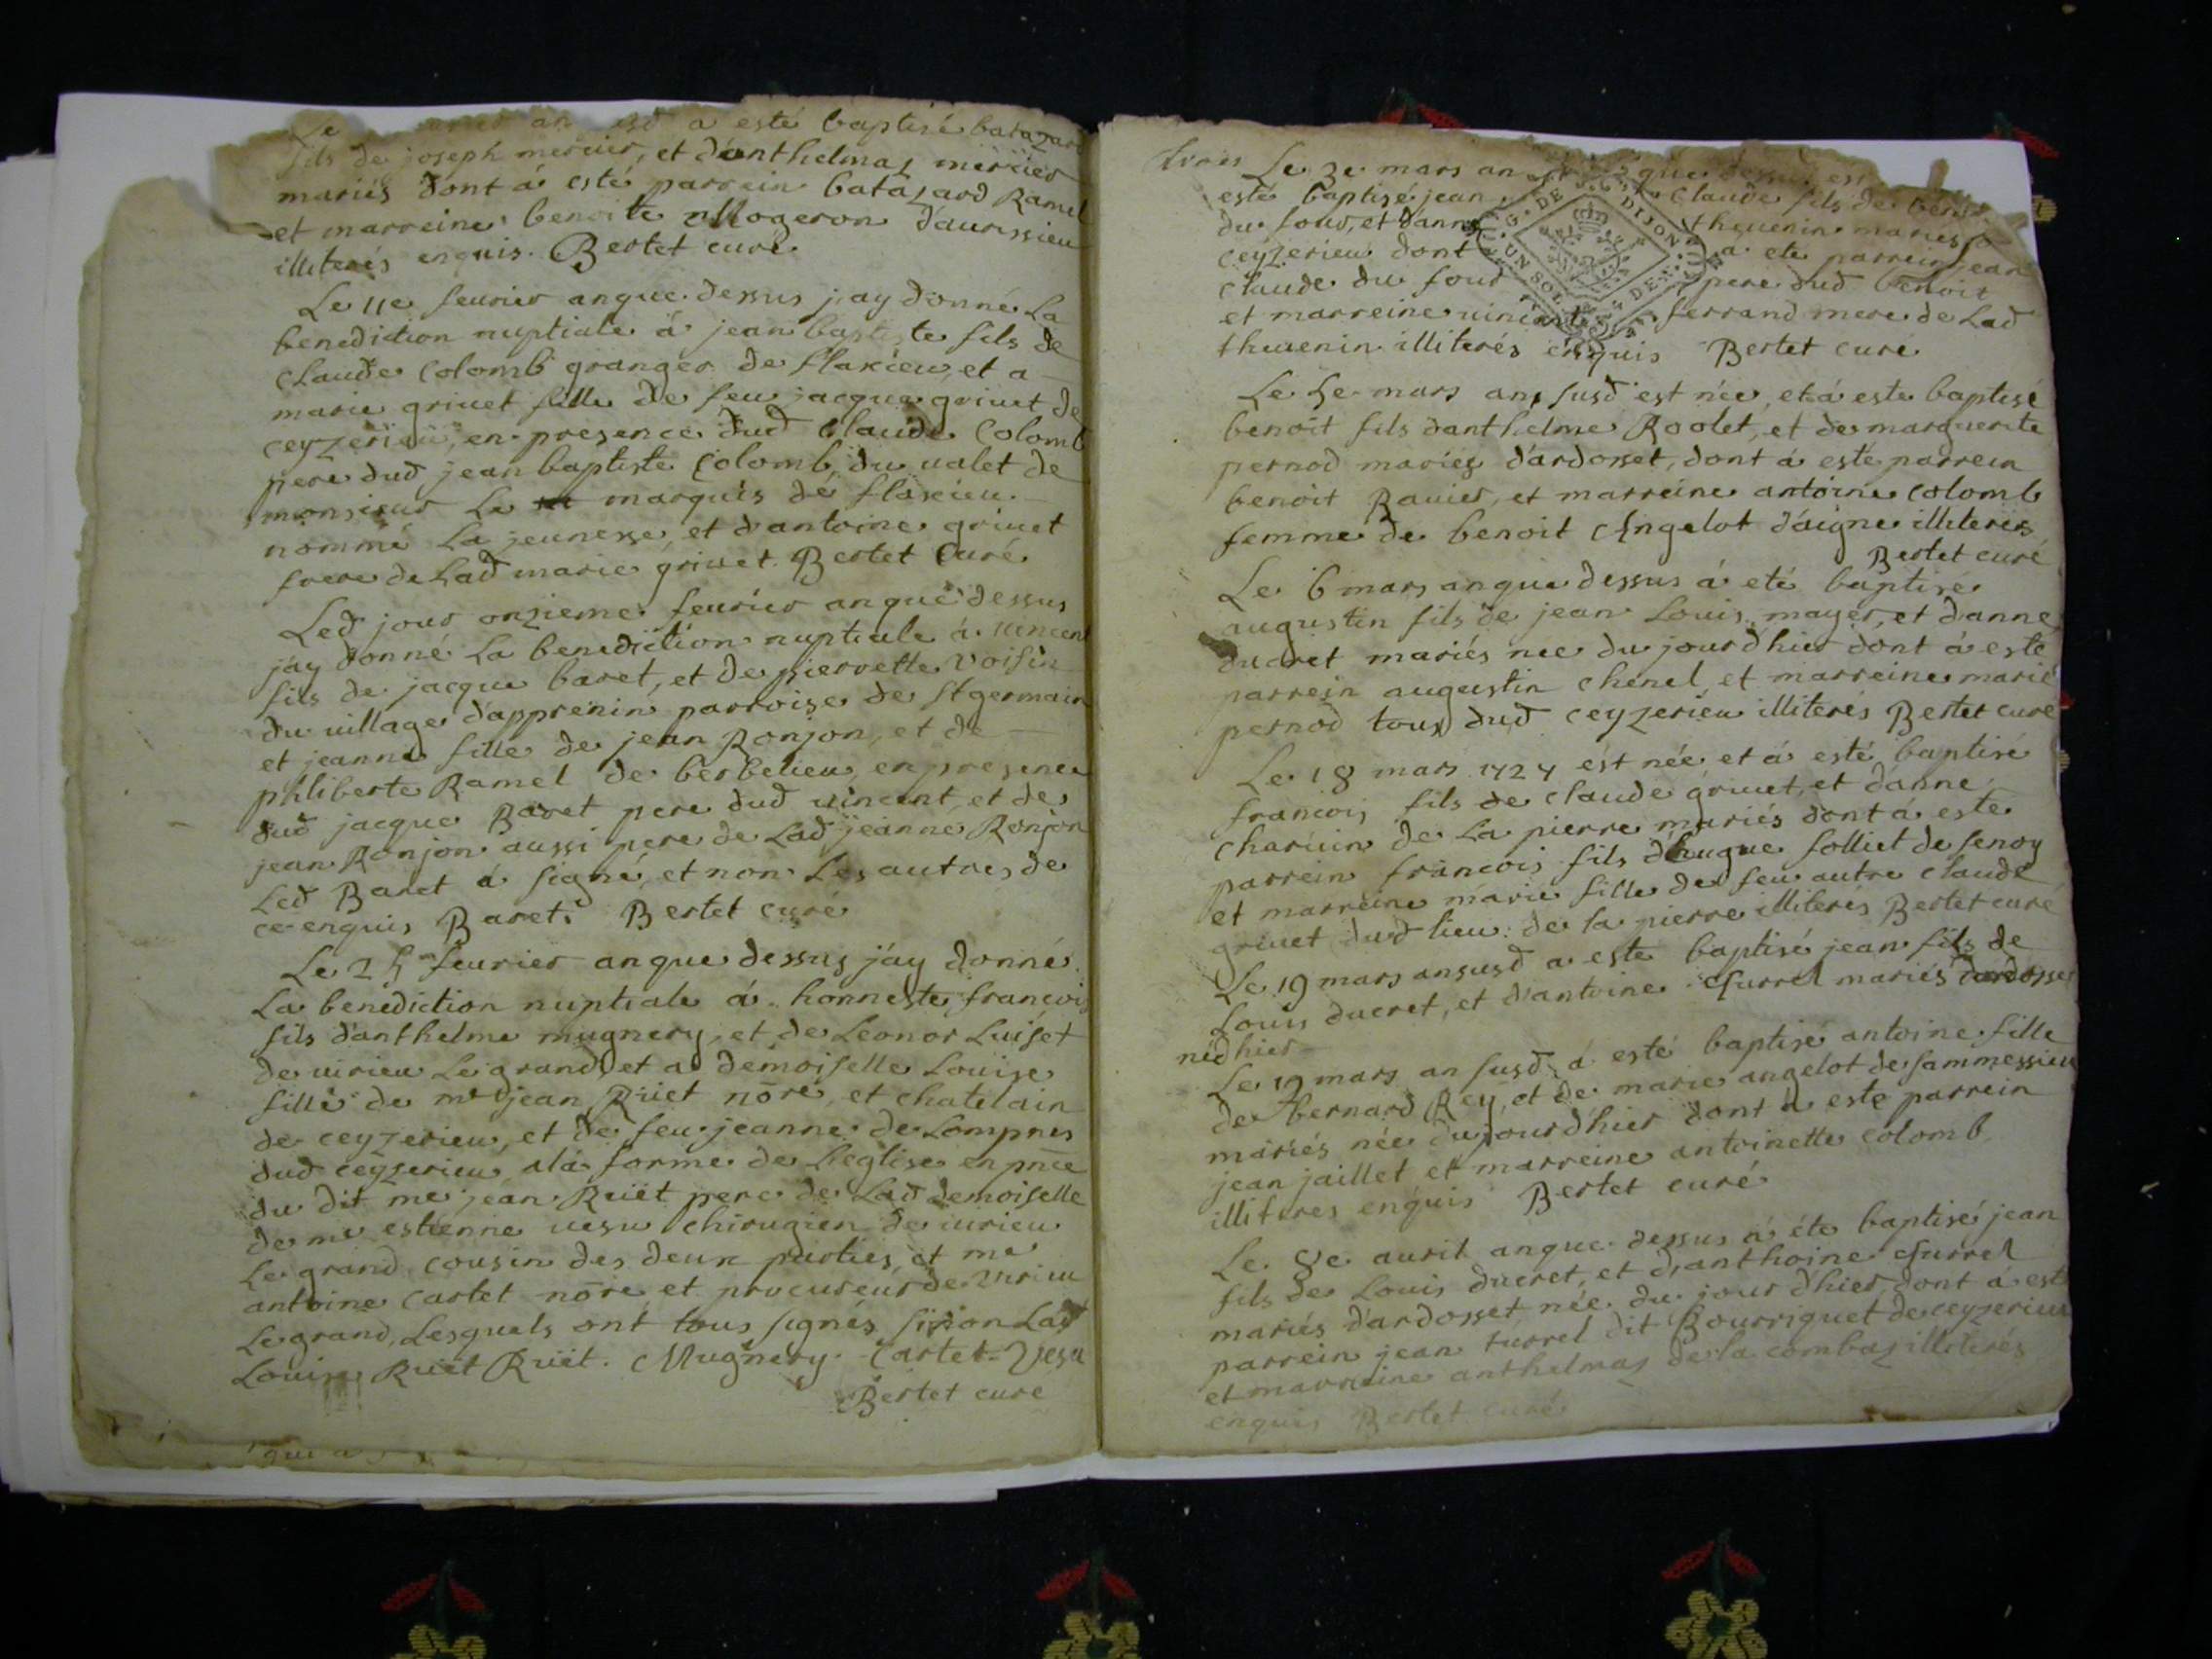 Le an susd a esté baptisé batazard
fils de joseph mercier, et d'anthelmaz mercier
mariés dont á esté parrein batazard Ramel
et marreine benoite Mogeron d'aurissieu
illiterés enquis. Bertet curé
Le 11e feurier anque dessus jay donné La
benediction nuptiale á jean baptiste fils de
Claude Colomb granger de flaxieu, et a
marie griuet fille de feu jacque griuet de
ceyzerieu, en presence dud Claude Colomb
pere dud jean baptiste Colomb, du ualet de
monsieur Le marquis de flaxieu
nommé La jeunesse, et d'antoine griuet
frere de Lad marie griuet. Bertet Curé
Led jour onzieme feurier anque dessus
jay donné La benediction nuptiale á uincent
fils de jacque baret, et de pierrette Voisin
du uillage d'apprenin parroisse de St germain
et jeanne fille de jean Ronjon, et de
phliberte Ramel de berbelieu, en presence
dud jacque Baret pere dud uincent, et de
jean Ronjon aussi pere de Lad jeanne Ronjon
Led Baret á signé, et non Les autres de
ce enquis Baret. Bertet curé
Le 25 feurier anque dessus jay donné
La benediction nuptiale á honneste francois
fils d'anthelme mugnery, et de Leonor Luiset
de uirieu Le grand, et a demoiselle Louise
fille de me jean Ruiet nõre, et chatelain
de ceyzerieu, et de feu jeanne de Lompnes
dud ceyzerieu, alá forme de L'eglise en pnce
du dit me jean Ruiet pere de Lad demoiselle
de me estienne uesu chirugien de uirieu
Le grand cousin des deux parties, et me
antoine Cartet nõre et procureur de Virieu
Le grand, Lesquels ont tous signés sinon Lad
Louise Ruiet Ruiet. Mugnery. Cartet. Vesu
Bertet curé
que a
Le 3e mars an que dessus
esté baptisé jean Claude fils de benoit
du four, et danne theuenin mariés
ceyzerieu dont a eté parrein jean
Claude du four pere dud benoit
et marreine ferrand mere de Lad
theuenin illiterés enquis Bertet curé
G. DE DIJON
UN SOL DE
Le 5e mars an susd est née, et á esté baptisé
benoit fils d'anthelme Roolet, et de marguerite
pernod mariez d'ardosset, dont á esté parrein
benoit Rauier, et marreine antoine Colomb
femme de benoit Angelot d'aigne illiterés
Bertet curé
Le 6 mars anque dessus á eté baptisé
augustin fils de jean Louis mayer, et danne
ducret mariés née du jourdhier dont á esté
parrein augustin chenel, et marreine marie
pernod tous dud ceyzerieu illiterés Bertet curé
Le 18 mars 1724 est née et á esté baptisé
francois fils de claude griuet, et danne
charuin de La pierre mariés dont á esté
parrein francois fils d'hugue folliet de senoy
et marreine marie fille de feu autre claude
griuet dud lieu de la pierre illiterés Bertet curé
Le 19 mars ansusd a esté baptisé jean fils de
Louis ducret, et d'antoine furrel mariés d'ardosset
né dhier
Le 19 mars an susd á esté baptisé antoine fille
de bernard Rey, et de marie angelot de sammessieu
mariés née du jourdhier dont á esté parrein
jean jaillet et marreine antoinette Colomb
illiteres enquis Bertet curé
Le 8e auril anque dessus á été baptisé jean
fils de Louis ducret, et d'anthoine furrel
mariés d'ardosset née du jour dhier, dont á esté
parrein jean furrel dit Bourriquet de ceyzerieu
et marreine anthelmaz de la combaz illiterés
enquis Bertet curé